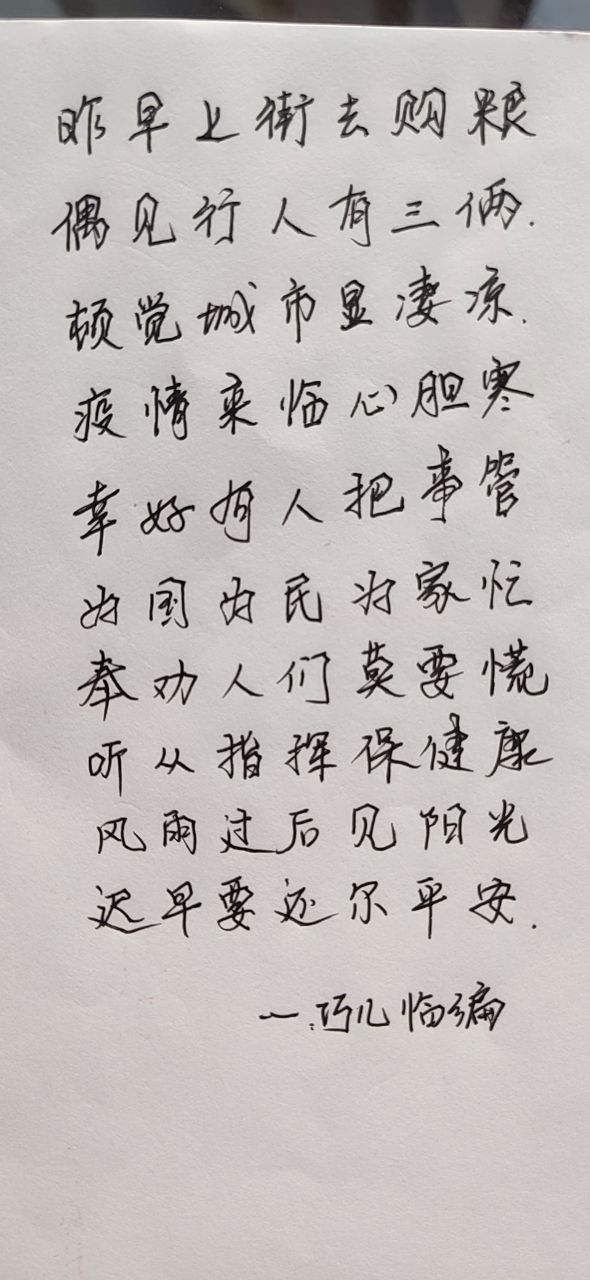 昨早上街去购粮
偶见行人有三俩.
顿觉城市显凄凉.
疫情来临心胆寒
幸好有人把事管
为国为民为家忙
奉劝人们莫要慌
听从指挥保健康
风雨过后见阳光
迟早要还尔平安.
一.巧儿临编